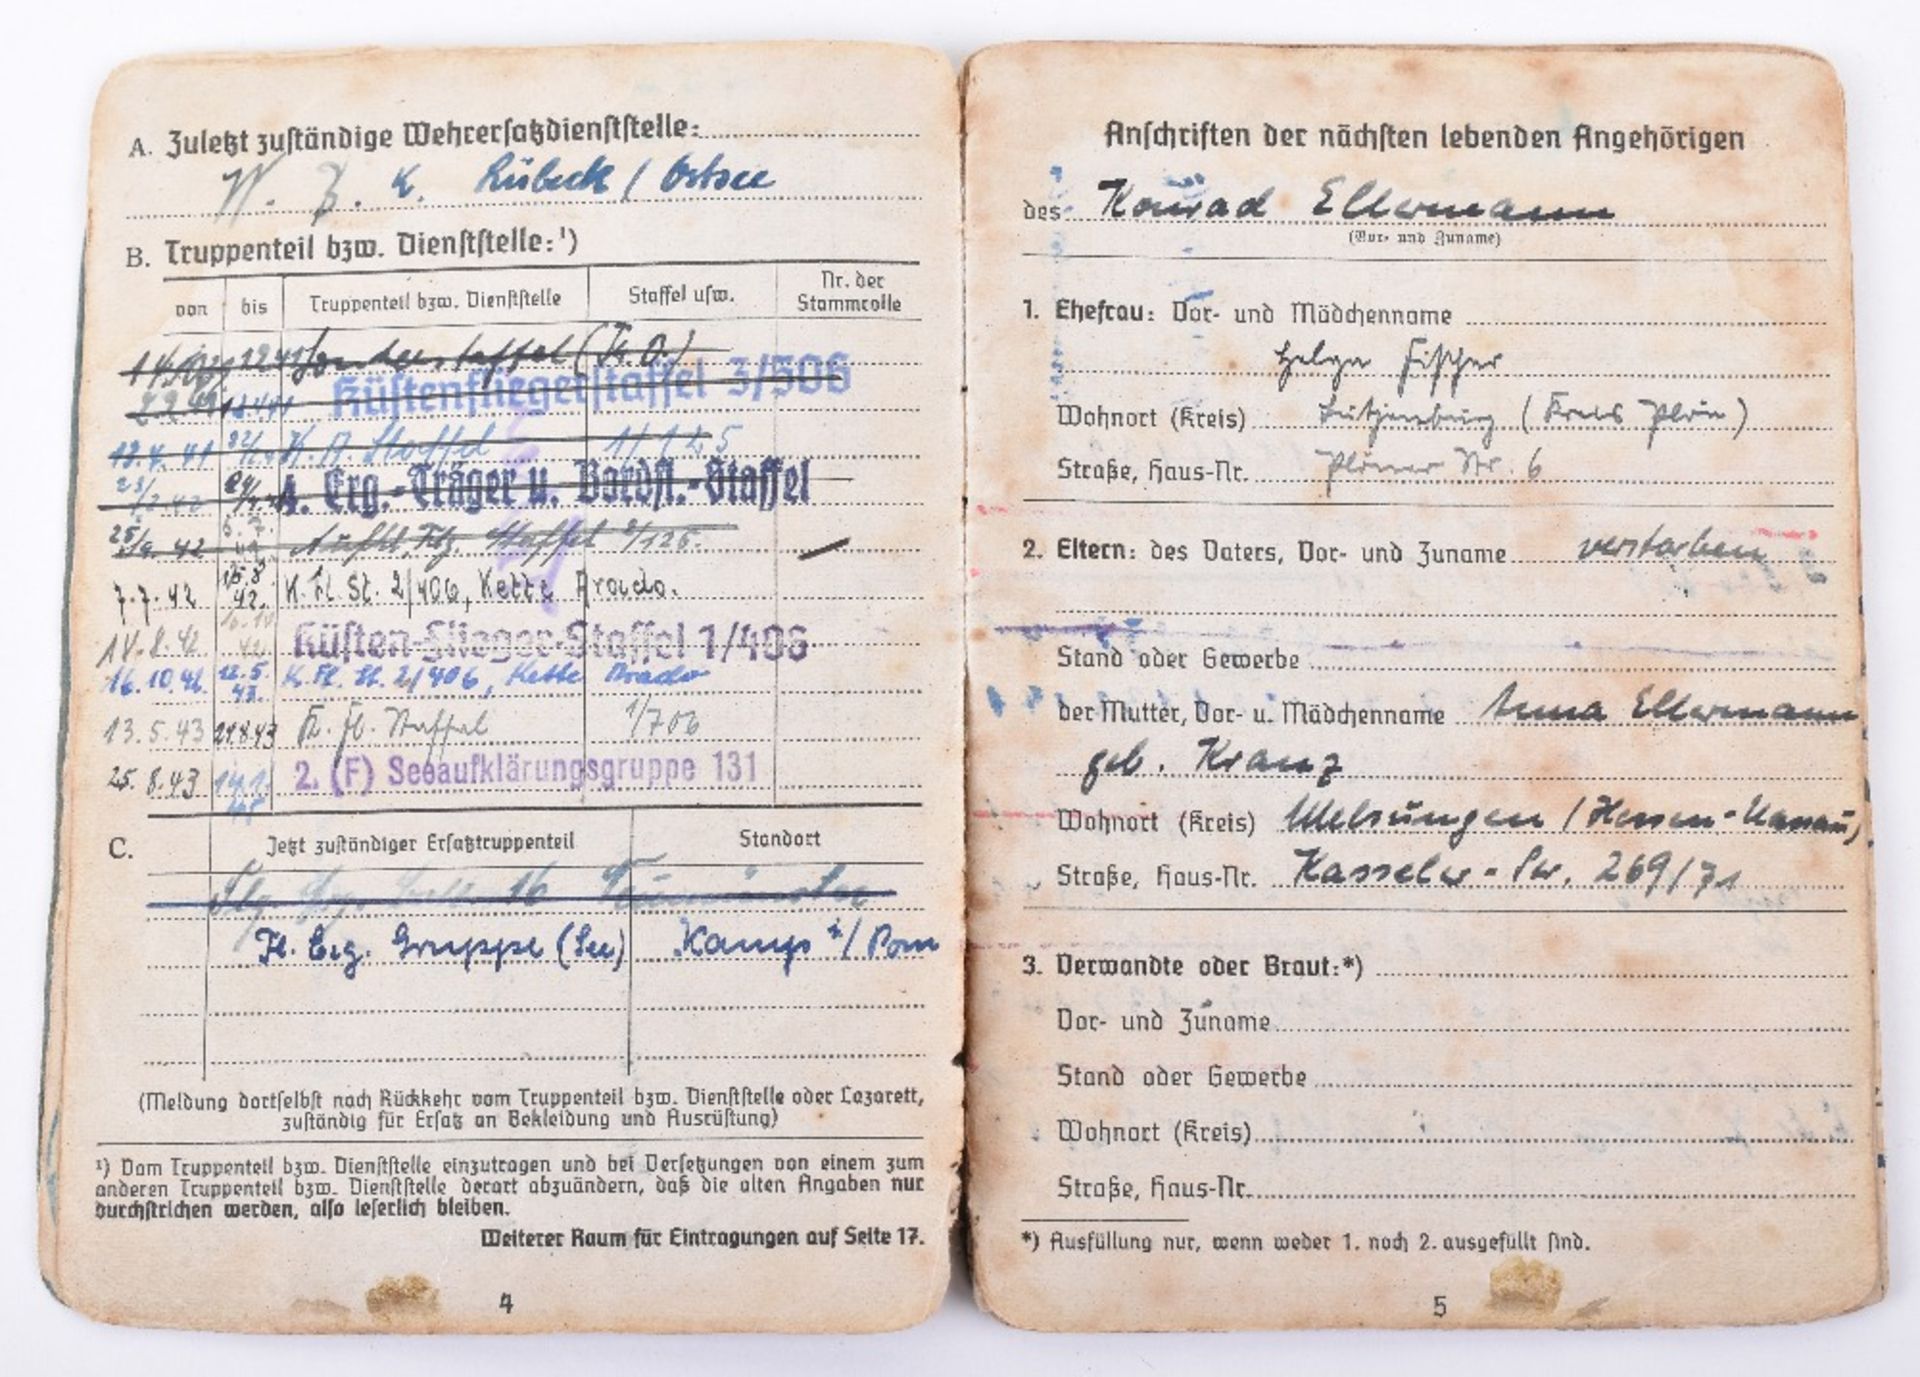 A. Zuletzt zuständige Wehrersatzdienststelle:
Lübeck / Ostsee
B. Truppenteil bzw. Dienststelle:¹)
von bis Truppenteil bzw. Dienststelle Staffel usw. Nr. der Stammrolle
Küstenfliegerstaffel 3/506
Staffel 1/125
4. Erg.-Träger u. Bordfl.-Staffel
Staffel 2/125.
7.7.42 15.8.42. K. Fl. St. 2/406, Kette Arado.
Küsten-Flieger-Staffel 1/406
K. Fl. St. 2/406, Kette Arado
13.5.43 K. Fl. Staffel 1/706
25.8.43 2. (F) Seeaufklärungsgruppe 131
C. Jetzt zuständiger Ersatztruppenteil Standort
Fl. Erg. Gruppe (See) Kamp / Pom
(Meldung dortselbst nach Rückkehr vom Truppenteil bzw. Dienststelle oder Lazarett,
zuständig für Ersatz an Bekleidung und Ausrüstung)
¹) Vom Truppenteil bzw. Dienststelle einzutragen und bei Versetzungen von einem zum
anderen Truppenteil bzw. Dienststelle derart abzuändern, daß die alten Angaben nur
durchstrichen werden, also leserlich bleiben.
Weiterer Raum für Eintragungen auf Seite 17.
4
Anschriften der nächsten lebenden Angehörigen
des Konrad Ellermann
(Vor- und Zuname)
1. Ehefrau: Vor- und Mädchenname
Helga Fischer
Wohnort (Kreis) Lütjenburg (Kreis Plön)
Straße, Haus-Nr. Plöner Str. 6
2. Eltern: des Vaters, Vor- und Zuname verstorben
Stand oder Gewerbe
der Mutter, Vor- u. Mädchenname Anna Ellermann
geb. Kranz
Wohnort (Kreis) Melsungen / Hessen-Nassau
Straße, Haus-Nr. Kasseler-Str. 269/71
3. Verwandte oder Braut:*)
Vor- und Zuname
Stand oder Gewerbe
Wohnort (Kreis)
Straße, Haus-Nr.
*) Ausfüllung nur, wenn weder 1. noch 2. ausgefüllt sind.
5